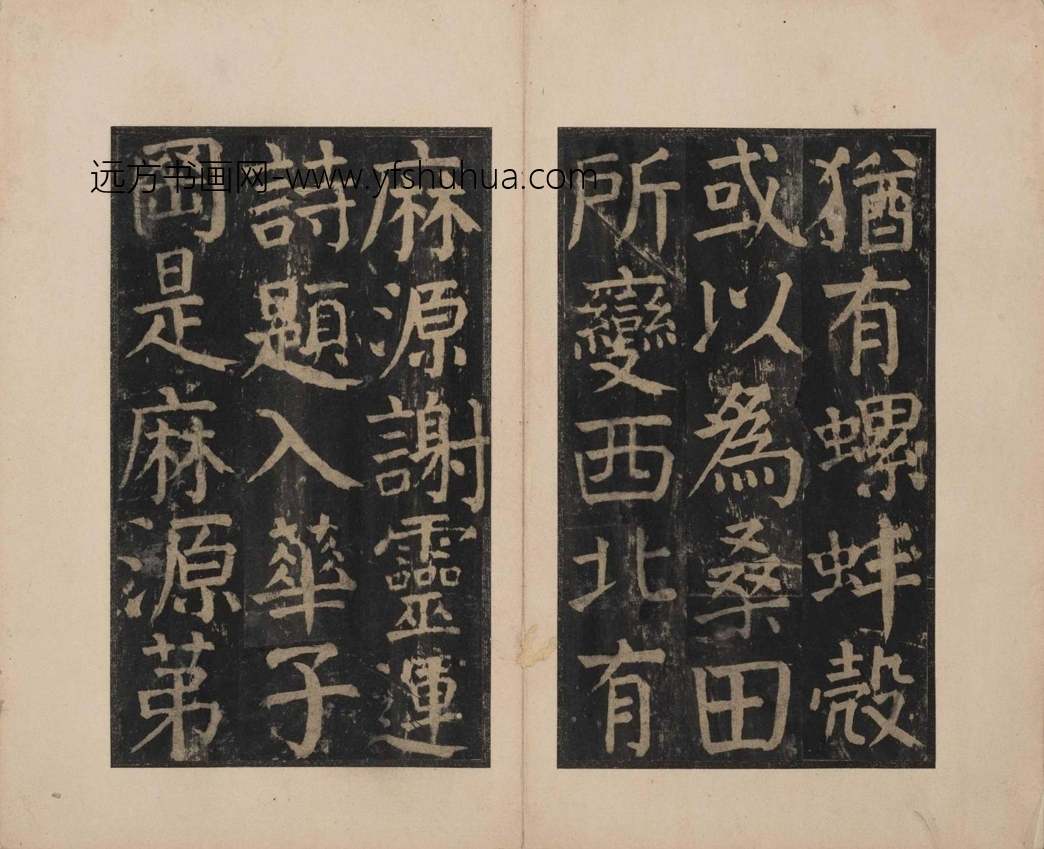 猶有螺蚌殼
或以為桑田
所變西北有
麻源謝靈運
詩題入華子
岡是麻源苐
远方书画网-www.yfshuhua.com